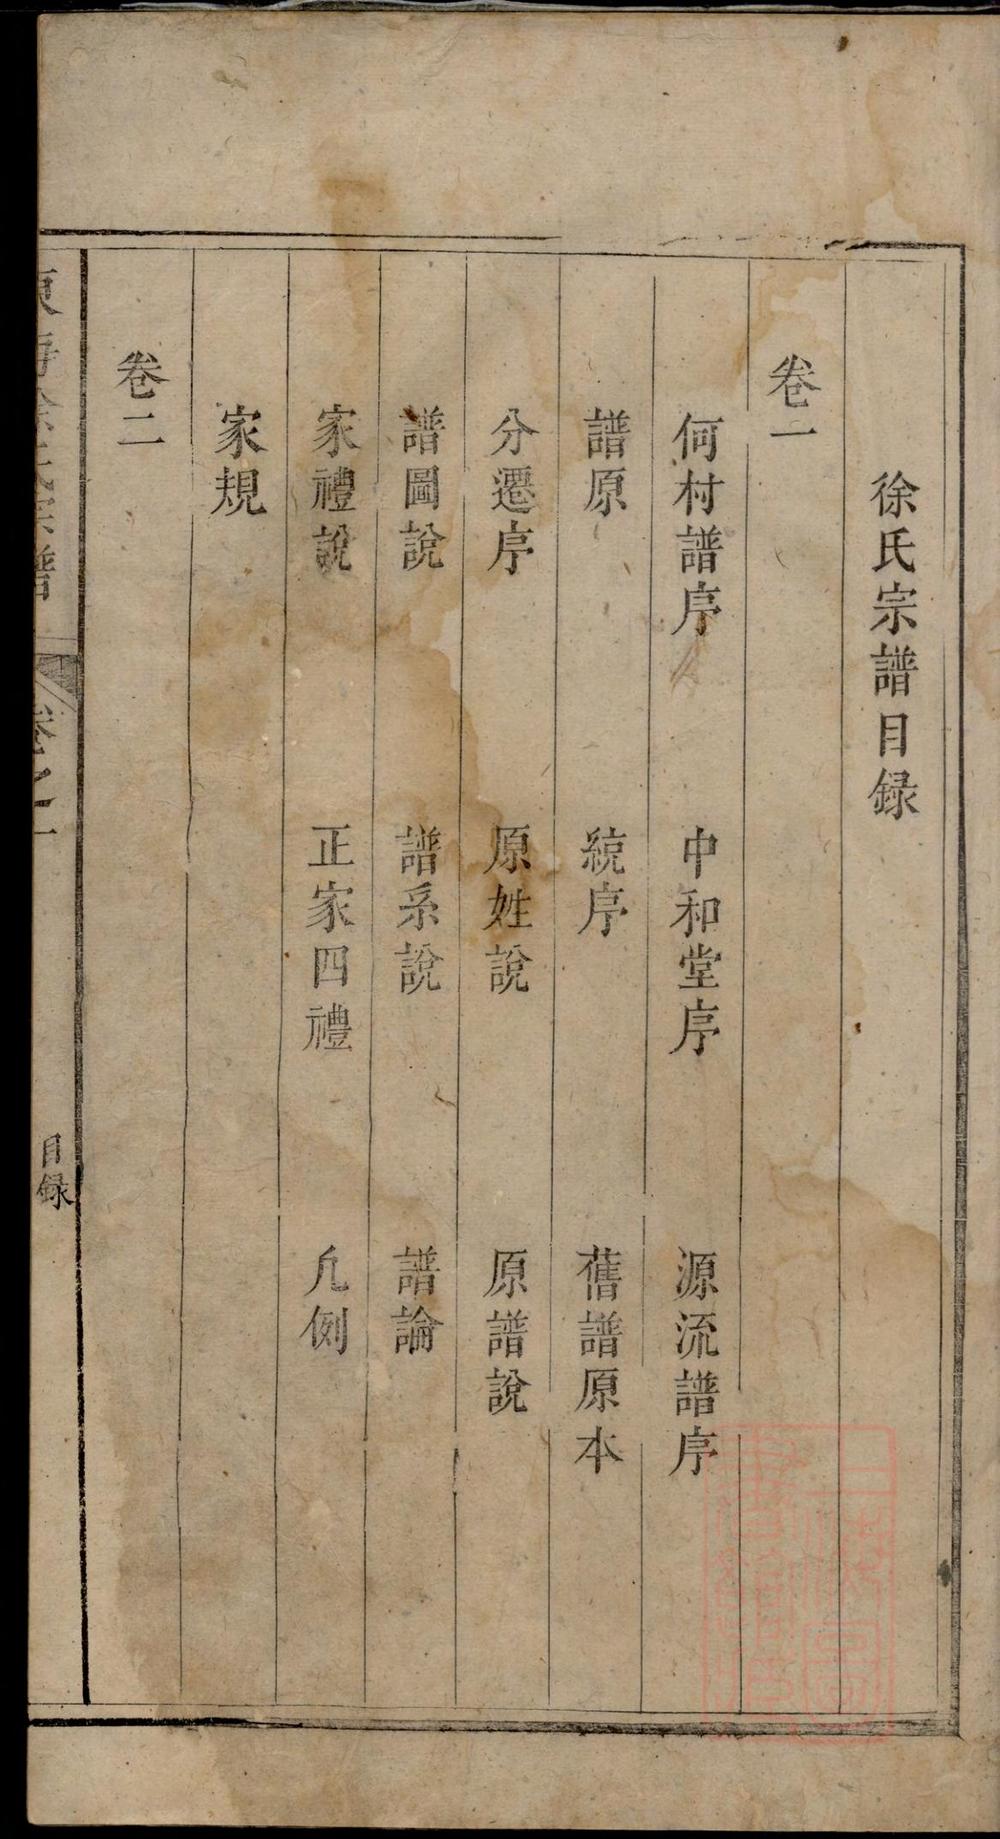 徐氏宗譜目録
卷一
何村譜序 中和堂序 源流譜序
譜原 統序 舊譜原本
分遷序 原姓說 原譜說
譜圖說 譜系說 譜論
家禮說 正家四禮 凡例
家規
卷二
東海徐氏宗譜 卷之一 目録